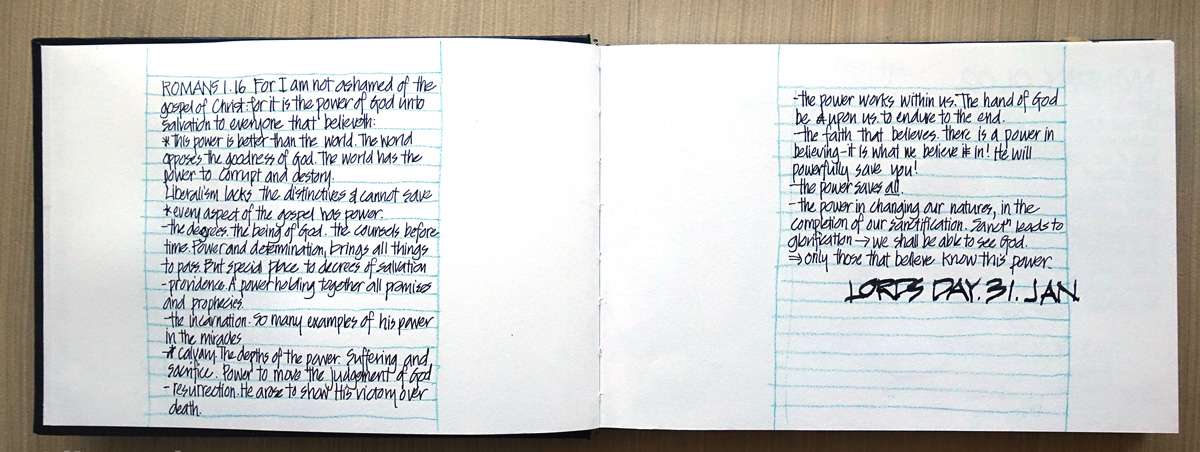 ROMANS 1.16 For I am not ashamed of the
gospel of Christ: for it is the power of God unto
salvation to everyone that believeth:
* This power is better than the world. The world
opposes the goodness of God. The world has the
power to corrupt and destory.
Liberalism lacks the distinctives & cannot save
* every aspect of the gospel has power.
- the degrees. the being of God. the counsels before
time. Power and determination, brings all things
to pass. But special place to decrees of salvation
- providence. A power holding together all promises
and prophecies.
- the incarnation. So many examples of his power
in the miracles
- * calvary. The depths of the power. Suffering and
sacrifice. Power to move the judgement of God
- resurrection. He arose to show His victory over
death.
- the power works within us. The hand of God
be upon us. to endure to the end.
- the faith that believes. there is a power in
believing - it is what we believe in! He will
powerfully save you!
- the power saves all.
- the power in changing our natures, in the
completion of our sanctification. Sanctn leads to
glorification → we shall be able to see God.
⇒ only those that believe know this power.
LORDS DAY. 31. JAN